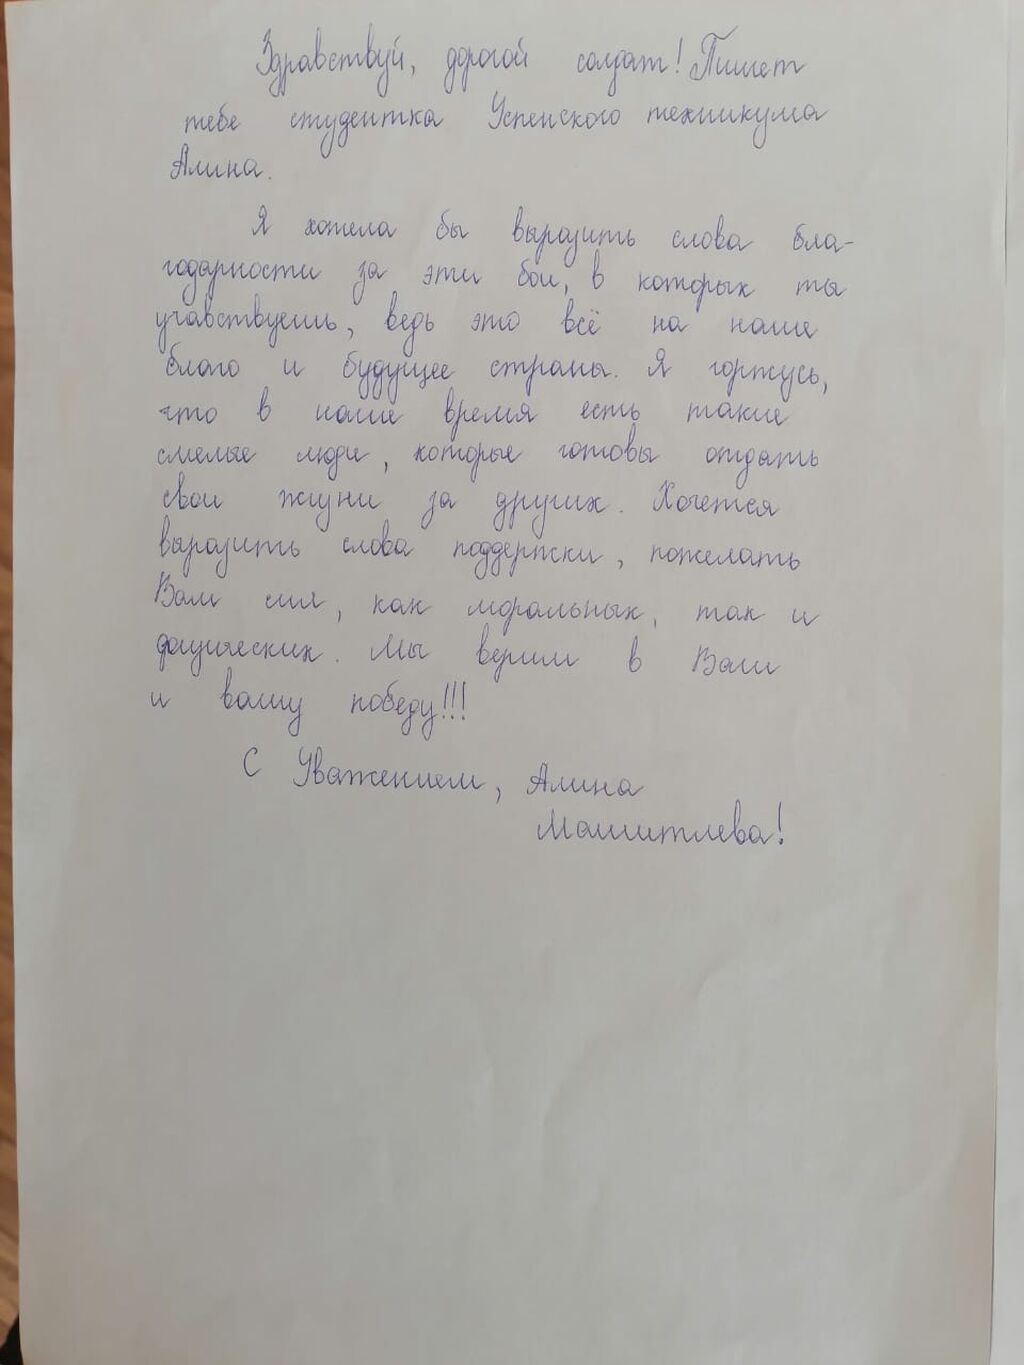 Здравствуй, дорогой солдат! Пишет
тебе студентка Успенского техникума
Алина.
Я хотела бы выразить слова бла-
годарности за эти бои, в которых ты
учавствуешь, ведь это всё на наше
благо и будущее страны. Я горжусь,
что в наше время есть такие
смелые люди, которые готовы отдать
свои жизни за других. Хочется
выразить слова поддержки, пожелать
Вам сил, как моральных, так и
физических. Мы верим в Вас
и вашу победу!!!
С Уважением, Алина
Машитлева!